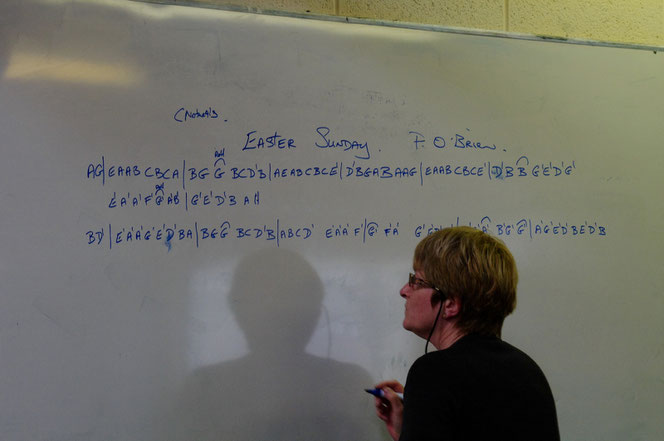 (Natural's.
EASTER SUNDAY. P. O'BRIEN.
AG|EAAB CBCA|BG G BCD'B|AEAB CBCE'|D'BGABAAG|EAAB CBCE'|D'B B G'E'D'G'
E'A'A'F' G'A'B'|G'E'D'B A||
BD'|E'A'A'G'E'D'BA|BG G BCD'B|ABCD' E'A'A'F'|G' F'A' G'E' A' B'G'G'|A'G'E'D'BE'D'B